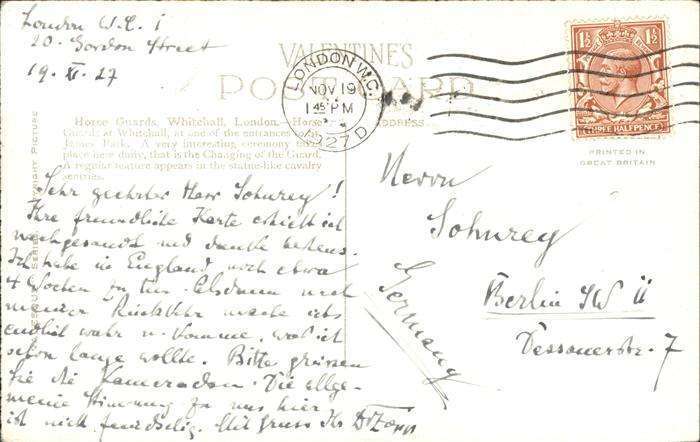 London W.C. 1
20. Gordon Street
19. XI. 27
VALENTINES
POST CARD
LONDON. W.C.1
NOV 19
1 45 PM
1927 D
1½ 1½
THREE HALFPENCE
PRINTED IN
GREAT BRITAIN
Horse Guards, Whitehall, London. Horse
Guards at Whitehall, at one of the entrances to St.
James Park. A very interesting ceremony takes
place here daily, that is the Changing of the Guard.
A regular feature appears in the statue-like cavalry
sentries.
ADDRESS
Sehr geehrter Herr Sohurey!
Ihre freundliche Karte erhielt ich
nachgesandt und danke bestens.
Ich habe in England noch etwa
4 Wochen zu tun. Alsdann nach
meiner Rückkehr mache ichs
endlich wahr u. komme, was ich
schon lange wollte. Bitte grüssen
Sie die Kameraden. Die allge-
meine Stimmung zu uns hier
ist nicht feindselig. Mit Gruss Ihr
Herrn
Sohurey
Berlin SW 11
Dessauerstr. 7
Germany